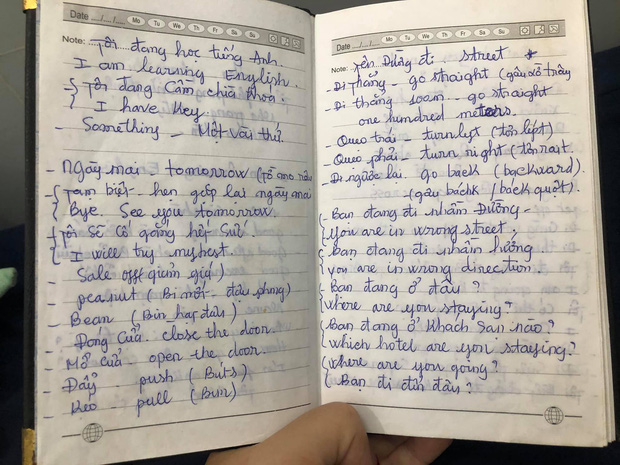 Date ..../..../.... Mo Tu We Th Fr Sa Su
Note: Tôi đang học tiếng Anh.
I am learning English.
- Tôi đang cầm chìa khóa.
I have key.
- Something - Một vài thứ.
- Ngày mai - tomorrow (tờ mo râu
Tạm biệt - hẹn gặp lại ngày mai
Bye. See you tomorrow.
Tôi sẽ cố gắng hết sức
I will try my best.
Sale off (giảm giá)
- peanut ( - đậu phọng)
- Bean ( Bin hạt đậu)
- Đóng cửa. close the door.
- Mở cửa open the door.
- Đẩy push ( Buts)
- Kéo pull ( Bun)
Date ..../..../.... Mo Tu We Th Fr Sa Su
Note: Tên Đường đi street
- Đi thẳng - go straight (gâu
- Đi thẳng 100m - go straight
one hundred meters.
- Queo trái - turn left (tơn lép)
- Queo phải - turn right (tơn rait.
- Đi ngược lại go back (backward)
- (gâu bách / back quột).
- Bạn đang đi nhầm Đường -
you are in wrong street.
Bạn đang đi nhầm hướng.
you are in wrong direction.
Bạn đang ở đâu ?
where are you staying?
Bạn đang ở khách sạn nào ?
which hotel are you staying?
where are you going?
Bạn đi đến đâu ?